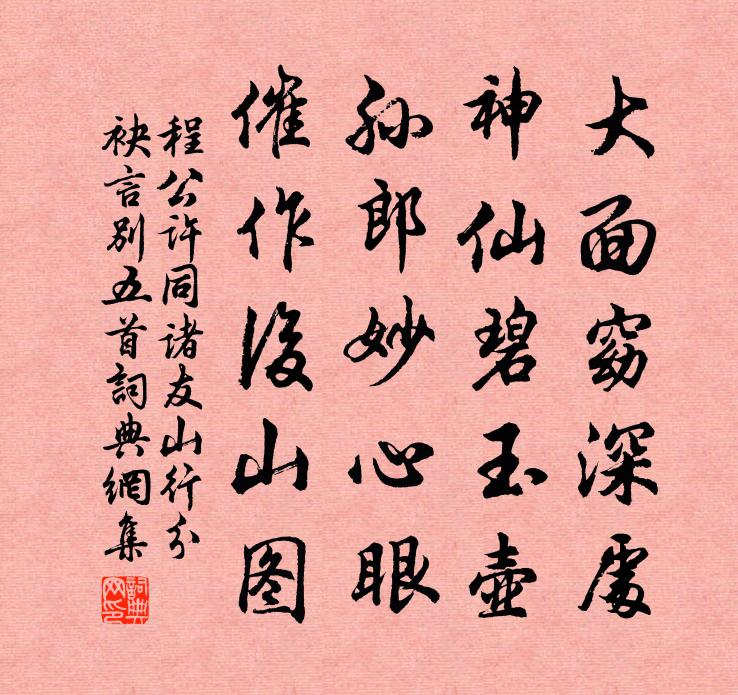 大面窈深處
神仙碧玉壺
孫郎妙心眼
催作後山图
程公許同諸友山行分
袂言別五首詞典網集
詞典
网印